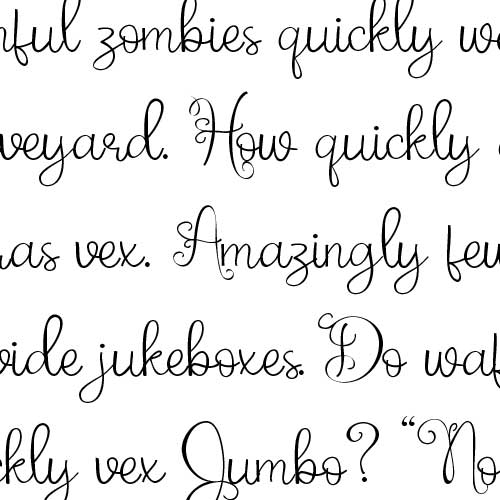 nful zombies quickly we
veyard. How quickly
ras vex. Amazingly few
vide jukeboxes. Do waf
ckly vex Jumbo? “No